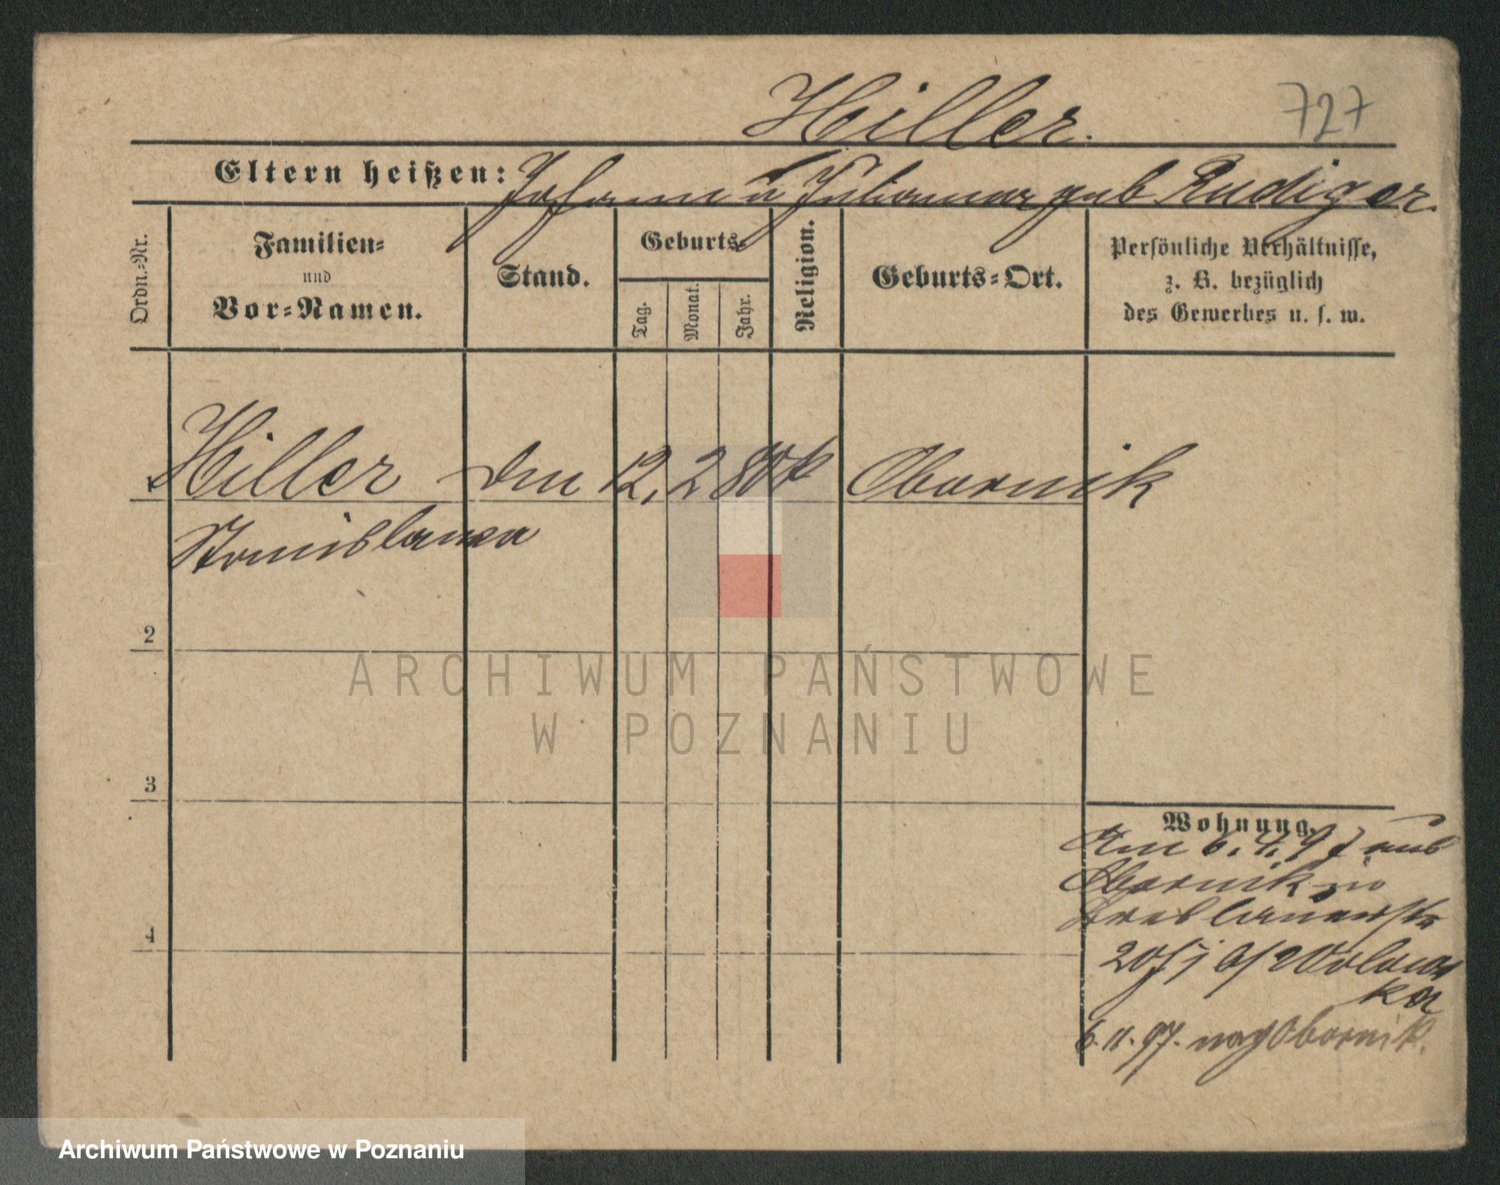 Hiller.
727
Eltern heißen: Johann u Julianna geb Rudiger.
Ordn.-Nr.
Familien-
und
Vor-Namen.
Stand.
Geburts-
Tag.
Monat.
Jahr.
Religion.
Geburts-Ort.
Persönliche Verhältnisse,
z. B. bezüglich
des Gewerbes u. s. w.
Hiller
12. 2 80 k
Obornik
Stanislawa
2
3
4
Wohnung.
Am 6. 4. 97 aus
Obornik
20
6. 11. 97. nach Obornik.
ARCHIWUM PAŃSTWOWE
W POZNANIU
Archiwum Państwowe w Poznaniu